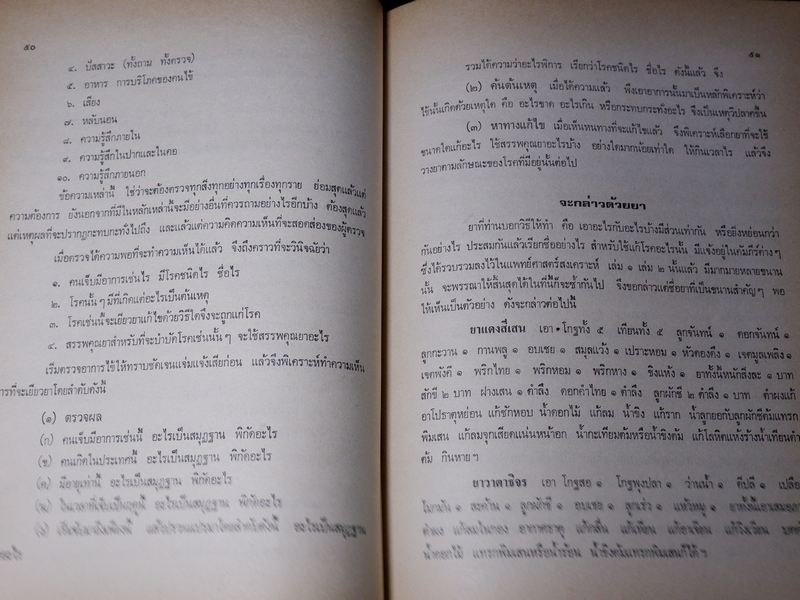 ๕๐
๔. ปัสสาวะ (ทั้งถาม ทั้งตรวจ)
๕. อาหาร การบริโภคของคนไข้
๖. เสียง
๗. หลับนอน
๘. ความรู้สึกภายใน
๙. ความรู้สึกในปากและในคอ
๑๐. ความรู้สึกภายนอก
ข้อความเหล่านี้ ใช่ว่าจะต้องตรวจทุกสิ่งทุกอย่างทุกเรื่องทุกราย ย่อมสุดแล้วแต่
ความต้องการ ยังนอกจากที่มีในหลักเหล่านี้จะมีอย่างอื่นที่ควรถามอย่างไรอีกบ้าง ต้องสุดแล้ว
แต่เหตุผลที่จะปรากฏกะทบกะทั่งไปถึง และแล้วแต่ความคิดความเห็นที่จะสอดส่องของผู้ตรวจ
เมื่อตรวจได้ความพอที่จะทำความเห็นได้แล้ว จึงถึงคราวที่จะวินิจฉัยว่า
๑. คนเจ็บมีอาการเช่นไร มีโรคชนิดไร ชื่อไร
๒. โรคนั้นๆ มีที่เกิดแต่อะไรเป็นต้นเหตุ
๓. โรคเช่นนี้จะเยียวยาแก้ไขด้วยวิธีใดจึงจะถูกแก่โรค
๔. สรรพคุณยาสำหรับที่จะบำบัดโรคเช่นนั้นๆ จะใช้สรรพคุณยาอะไร
เริ่มตรวจอาการไข้ให้ทราบชัดเจนแจ่มแจ้งเสียก่อน แล้วจึงพิเคราะห์ทำความเห็น
การที่จะเยียวยาโดยลำดับดังนี้
(๑) ตรวจผล
(ก) คนเจ็บมีอาการเช่นนี้ อะไรเป็นสมุฏฐาน พิกัดอะไร
(ข) คนเกิดในประเทศนี้ อะไรเป็นสมุฏฐาน พิกัดอะไร
(ค) มีอายุเท่านี้ อะไรเป็นสมุฏฐาน พิกัดอะไร
(ฆ) ในเวลาที่เจ็บเป็นฤดูนี้ อะไรเป็นสมุฏฐาน พิกัดอะไร
อะไรเป็นสมุฏฐาน
๕๑
รวมได้ความว่าอะไรพิการ เรียกว่าโรคชนิดไร ชื่อไร ดังนี้แล้ว จึง
(๒) ค้นต้นเหตุ เมื่อได้ความแล้ว พึงเอาอาการนั้นมาเป็นหลักพิเคราะห์ว่า
ไข้นั้นเกิดด้วยเหตุใด คือ อะไรขาด อะไรเกิน หรือกระทบกระทั่งอะไร จึงเป็นเหตุวิปลาศขึ้น
(๓) หาทางแก้ไข เมื่อเห็นหนทางที่จะแก้ไขแล้ว จึงพิเคราะห์เลือกยาที่จะใช้
ขนาดใดแก้อะไร ใช้สรรพคุณยาอะไรบ้าง อย่างใดมากน้อยเท่าใด ให้กินเวลาไร แล้วจึง
วางยาตามลักษณะของโรคที่มีอยู่นั้นต่อไป
จะกล่าวด้วยยา
ยาที่ท่านบอกวิธีให้ทำ คือ เอาอะไรกับอะไรบ้างมีส่วนเท่ากัน หรือยิ่งหย่อนกว่า
กันอย่างไร ประสมกันแล้วเรียกชื่ออย่างไร สำหรับใช้แก้โรคอะไรนั้น มีแจ้งอยู่ในคัมภีร์ต่างๆ
ซึ่งได้รวบรวมลงไว้ในแพทย์ศาสตร์สงเคราะห์ เล่ม ๑ เล่ม ๒ นั้นแล้ว มีมากมายหลายขนาน
นั้น จะพรรณาให้สิ้นสุดได้ในที่นี้ก็จะซ้ำกันไป จึงขอกล่าวแต่ชื่อยาที่เป็นขนานสำคัญๆ พอ
ให้เห็นเป็นตัวอย่าง ดังจะกล่าวต่อไปนี้
ยาแดงสีเสน เอา โกฐทั้ง ๕ เทียนทั้ง ๕ ลูกจันทน์ ๑ ดอกจันทน์ ๑
ลูกกะวาน ๑ กานพลู ๑ อบเชย ๑ สมุลแว้ง ๑ เปราะหอม ๑ หัวดองดึง ๑ เจตมูลเพลิง ๑
เจตพังคี ๑ พริกไทย ๑ พริกหอม ๑ พริกหาง ๑ ขิงแห้ง ๑ ยาทั้งนี้หนักสิ่งละ ๑ บาท
สักขี ๒ บาท ฝางเสน ๑ ตำลึง ดอกคำไทย ๑ ตำลึง ลูกผักชี ๒ ตำลึง ๑ บาท ตำผงแก้
อาโปธาตุหย่อน แก้ชักหอบ น้ำดอกไม้ แก้ลม น้ำขิง แก้ราก น้ำลูกยอกับลูกผักชีต้มแทรก
พิมเสน แก้ลมจุกเสียดแน่นหน้าอก น้ำกะเทียมต้มหรือน้ำขิงต้ม แก้โลหิตแห้งร้างน้ำเทียนดำ
ต้ม กินหายฯ
ยาวาตาธิจร เอา โกฐสอ ๑ โกฐพุงปลา ๑ ว่านน้ำ ๑ ดีปลี ๑
๑ สะค้าน ๑ ลูกผักชี ๑ อบเชย ๑ ลูกเร่ว ๑ แห้วหมู ๑ ยาทั้งนี้เอาเสมอภาค
ตำผง แก้ลมในกอง
น้ำดอกไม้ แทรกพิมเสนหรือน้ำร้อน น้ำขิงต้มแทรกพิมเสนก็ได้ฯ